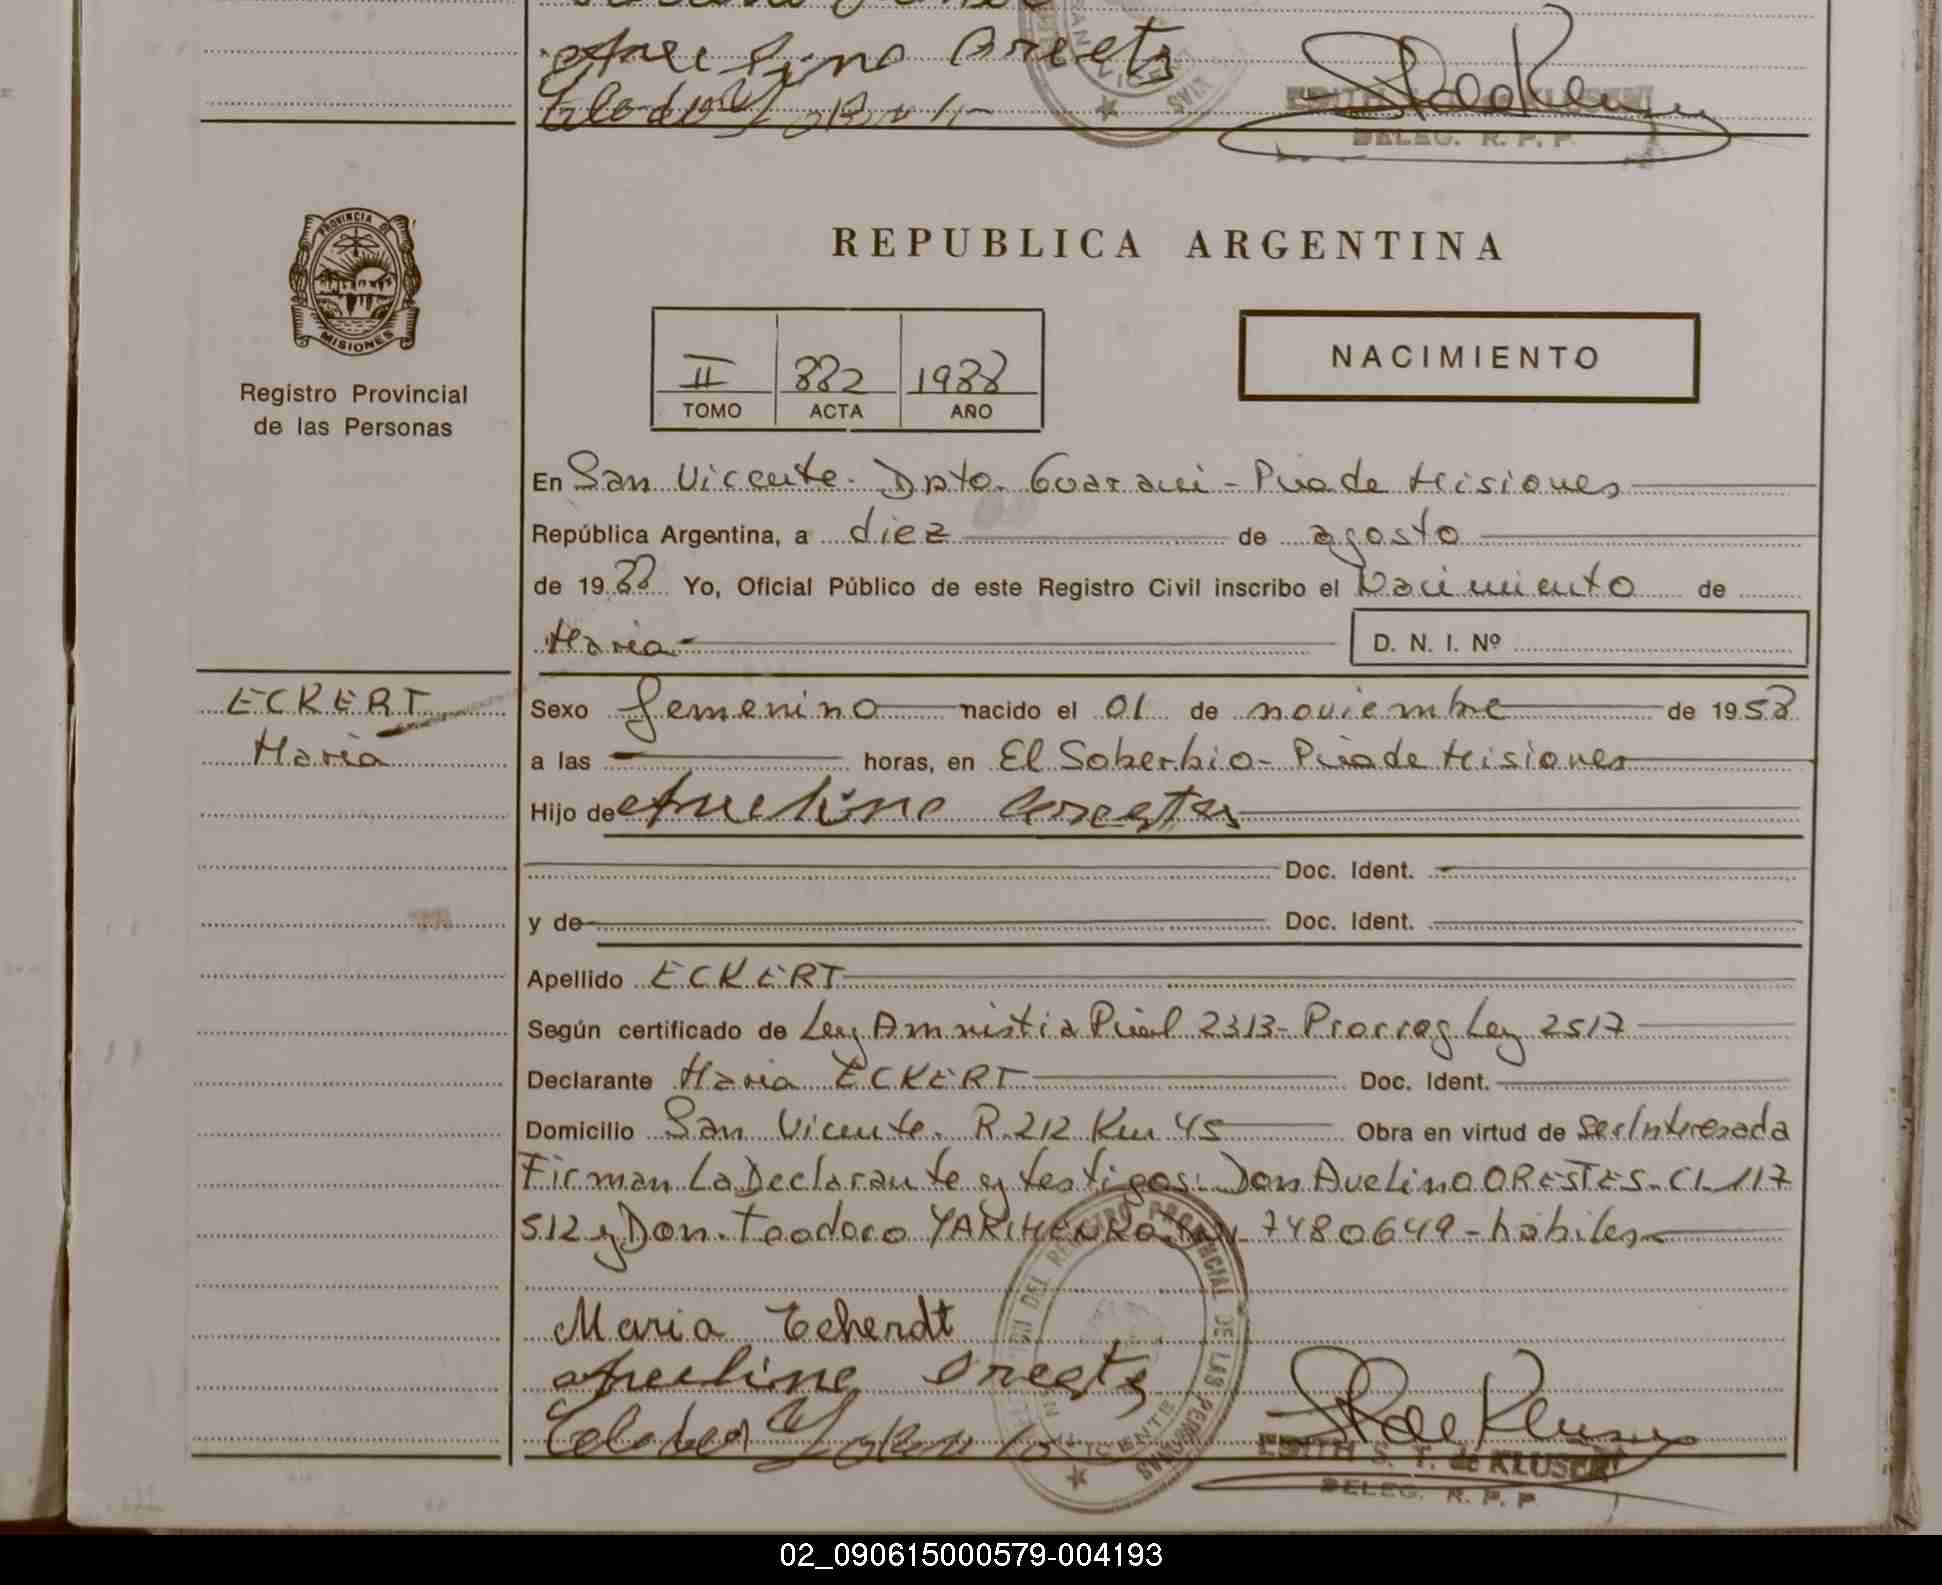 Avelino Orestes
EDITH S. T. de KLUSENI
DELEG. R. P. P.
PROVINCIA DE
MISIONES
Registro Provincial
de las Personas
REPUBLICA ARGENTINA
II 882 1988
TOMO ACTA AÑO
NACIMIENTO
En San Vicente - Dpto. Guarani - Pcia de Misiones
República Argentina, a diez de agosto
de 1988 Yo, Oficial Público de este Registro Civil inscribo el Nacimiento de
Maria D. N. I. Nº
ECKERT
Maria
Sexo femenino nacido el 01 de noviembre de 1958
a las horas, en El Soberbio - Pcia de Misiones
Hijo de Avelino Orestes
Doc. Ident.
y de Doc. Ident.
Apellido ECKERT
Según certificado de Ley Amnistia Pcial 2313- Prorrog Ley 2517
Declarante Maria ECKERT Doc. Ident.
Domicilio San Vicente. R.212 Km 45 Obra en virtud de ser Interesada
Firman La Declarante y testigos: Don Avelino ORESTES- CI. 117
512 y Don. Teodoro 7480649 - habiles
Maria Eckerdt
Avelino Orestes
EDITH S. T. de KLUSENI
DELEG. R. P. P.
02_090615000579-004193